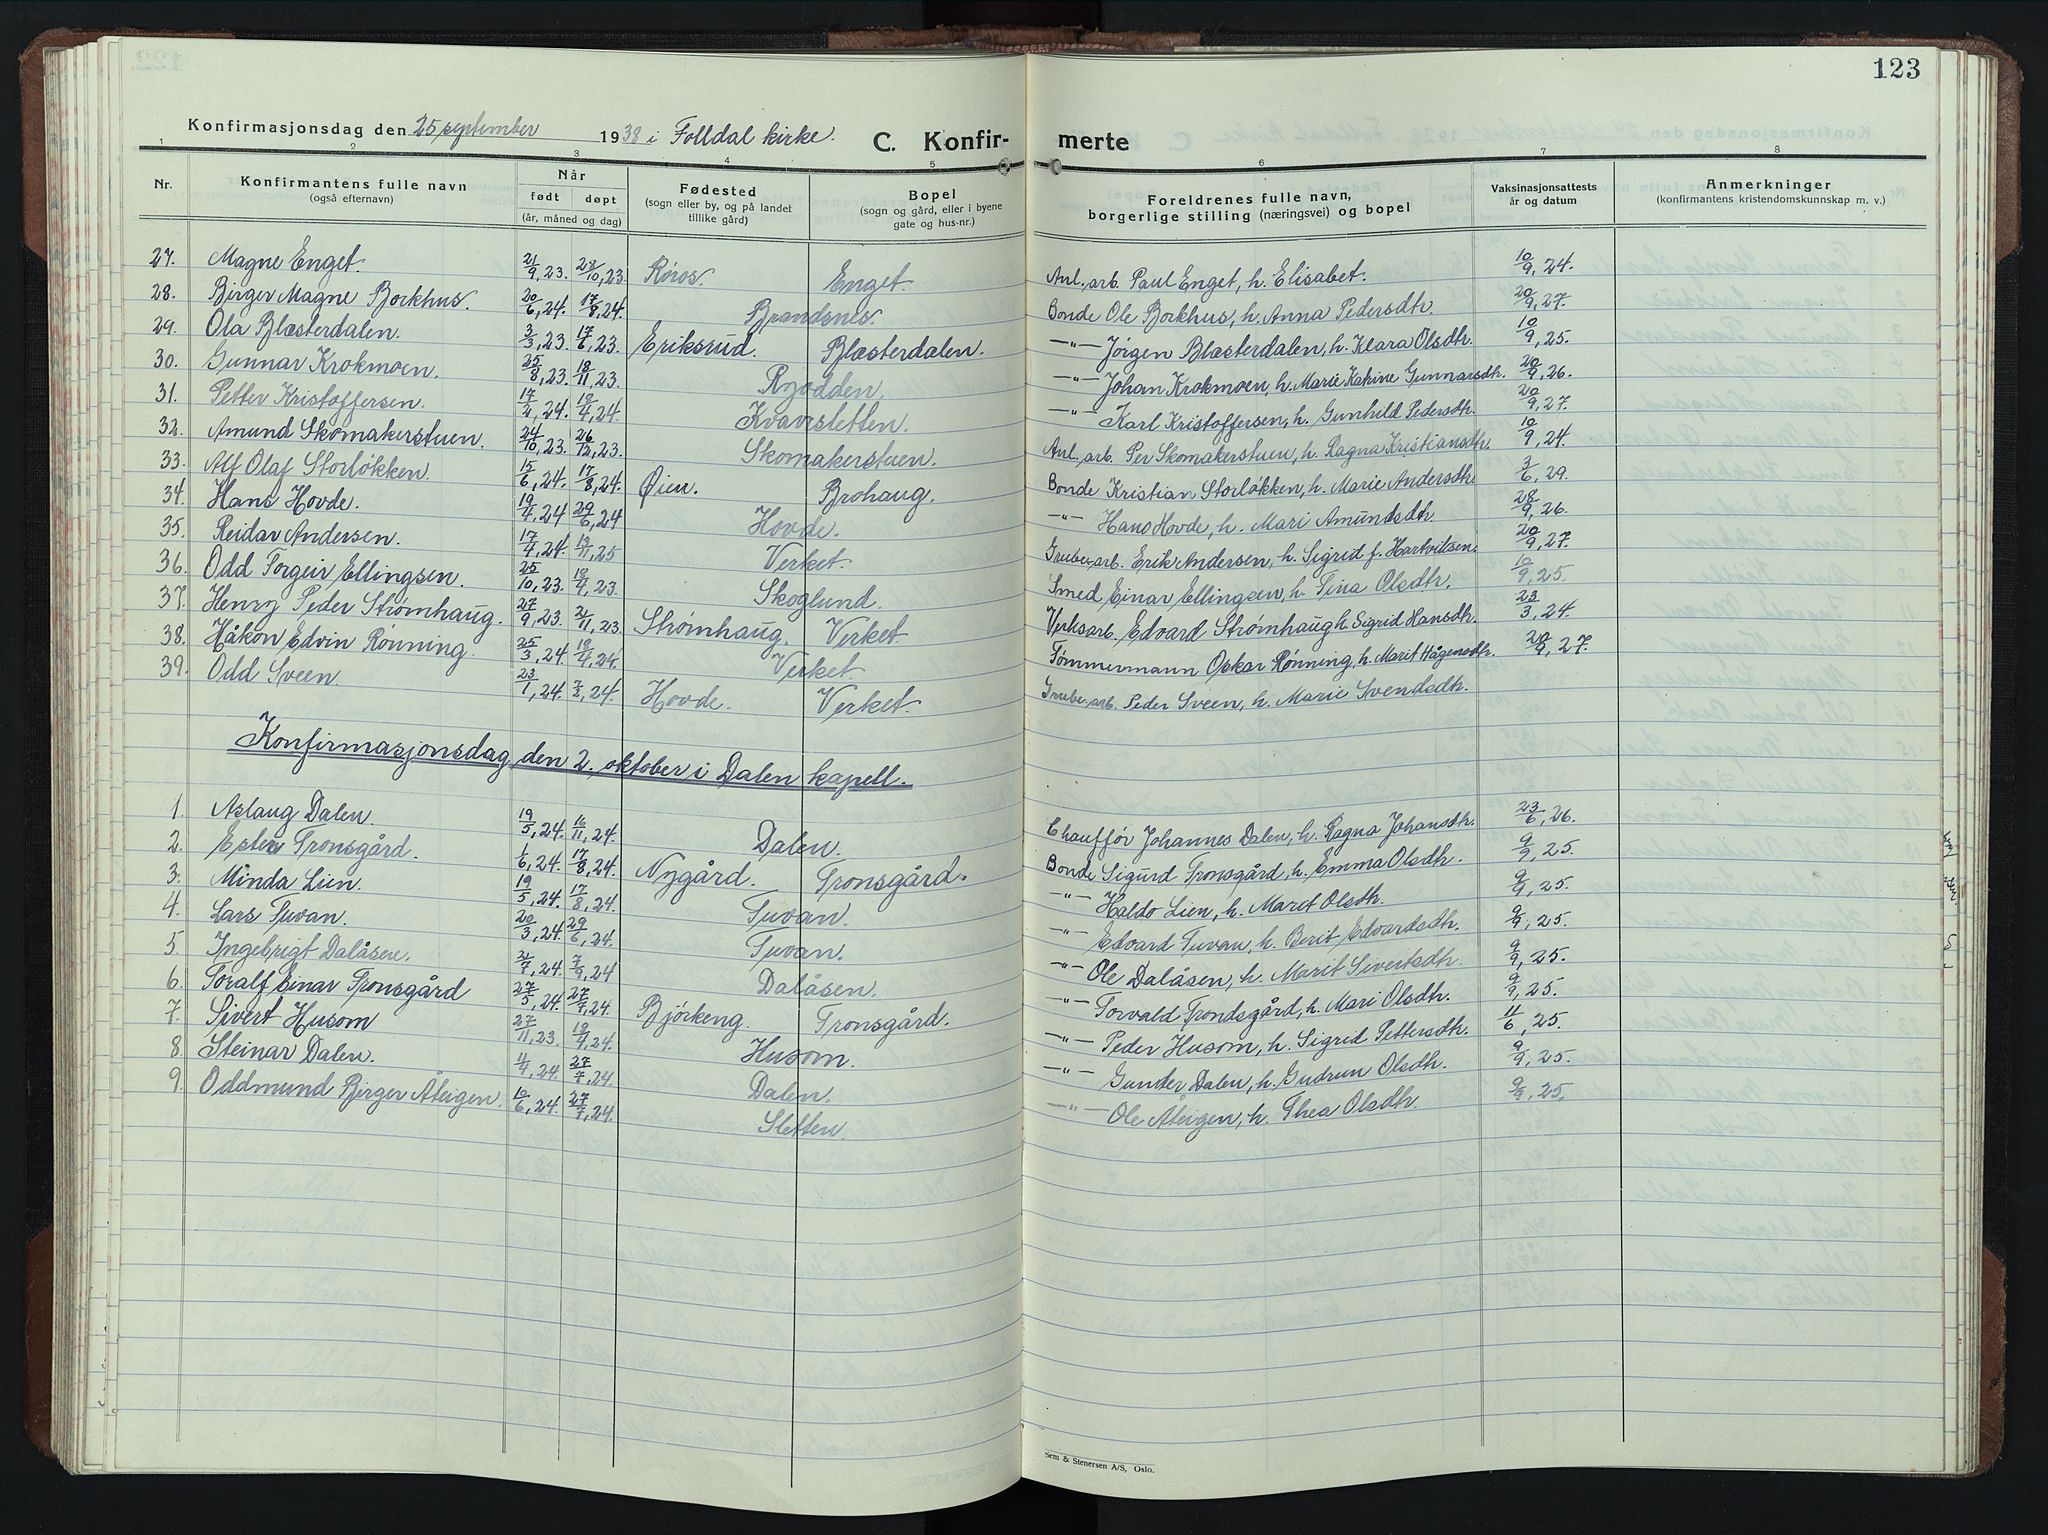 123
Konfirmasjonsdag den 25 september 1938 i Folldal kirke. C. Konfir- merte
1 2 3 4 5 6 7 8
Nr. Konfirmantens fulle navn (også efternavn) Når født døpt (år, måned og dag) Fødested (sogn eller by, og på landet tillike gård) Bopel (sogn og gård, eller i byene gate og hus-nr.) Foreldrenes fulle navn, borgerlige stilling (næringsvei) og bopel Vaksinasjonsattests år og datum Anmerkninger (konfirmantens kristendomskunnskap m. v.)
27. Magne Enget. 21/9, 23. 28/10, 23. Røros. Enget. Anl. arb. Paul Enget, h. Elisabet. 10/9, 24.
28. Birger Magne Borkhus. 20/6, 24. 17/8, 24. Brandsnes. Bonde Ole Borkhus, h. Anna Pedersdtr. 20/9, 27.
29. Ola Blæsterdalen. 3/3, 23. 17/6, 23. Eriksrud. Blæsterdalen. -"- Jörgen Blæsterdalen, h. Klara Olsdtr. 10/9, 25.
30. Gunnar Krokmoen. 25/8, 23. 18/11, 23. Ryodden. -"- Johan Krokmoen, h. Marie Katrine Gunnarsdtr. 20/9, 26.
31. Petter Kristoffersen. 24. 24. Kvavsletten. -"- Karl Kristoffersen, h. Gunhild Pedersdtr. 20/9, 27.
32. Amund Skomakerstuen. 24/10, 23. 26/12, 23. Skomakerstuen. Anl. arb. Per Skomakerstuen, h. Ragna Kristiansdtr. 10/9, 24.
33. Alf Olaf Storløkken. 15/6, 24. 17/8, 24. Øien. Brohaug. Bonde Kristian Storløkken, h. Marie Andersdtr. 3/6, 29.
34. Hans Hovde. 19/4, 24 29/6, 24 Hovde. -"- Hans Hovde, h. Mari Amundsdtr. 28/9, 26.
35. Reidar Andersen. 17/4, 24. 25 Verket. Grube. arb. Erik Andersen, h. Sigrid f. Hartvitsen. 20/9, 27.
36. Odd Torgeir Ellingsen. 25/10, 23. 23. Skoglund. Smed Einar Ellingsen, h. Tina Olsdtr. 10/9, 25.
37. Henry Peder Strømhaug. 27/9, 23. 2/11, 23 Strømhaug. Verket. Verksarb. Edvard Strømhaug h. Sigrid Hansdtr. 23/3, 24.
38. Håkon Edvin Rønning. 25/3, 24. 24. Verket. Tømmermann Oskar Rønning, h. Marit Hågensdtr. 20/9, 27.
39. Odd Sveen. 23/1, 24. 24. Hovde. Verket. Grube. arb. Peder Sveen, h. Marie Svendsdtr.
Konfirmasjonsdag den 2. oktober i Dalen kapell.
1. Aslaug Dalen. 19/5, 24. 16/11, 24. Dalen. Chauffør Johannes Dalen, h. Ragna Johansdtr. 23/6, 26.
2. Ester Tronsgård. 1/6, 24. 17/8, 24. Nygård. Tronsgård. Bonde Sigurd Tronsgård, h. Emma Olsdtr. 9/9, 25.
3. Minda Lien. 19/5, 24. 17/8, 24. Tuvan. -"- Haldo Lien, h. Marit Olsdtr. 9/9, 25.
4. Lars Tuvan. 20/3, 24. 29/6, 24. Tuvan. -"- Edvard Tuvan, h. Berit Edvardsdtr. 9/9, 25.
5. Ingebrigt Dalåsen. 24. 7/9, 24 Dalåsen. -"- Ole Dalåsen, h. Marit Sivertsdtr. 9/9, 25.
6. Toralf Einar Tronsgård 27/5, 24. 27/7, 24. Bjørkeng. Tronsgård. -"- Torvald Trondsgård, h. Mari Olsdtr. 9/9, 25.
7. Sivert Husom 27/11, 23. 24. Husom. -"- Peder Husom, h. Sigrid Pettersdtr. 11/6, 25.
8. Steinar Dalen. 24. 27/7, 24. Dalen. -"- Gunder Dalen, h. Gudrun Olsdtr. 9/9, 25.
9. Oddmund Birger Åteigen. 10/6, 24. 27/7, 24. Sletten. -"- Ole Åteigen, h. Thea Olsdtr. 9/9, 25.
Sem & Stenersen A/S, Oslo.